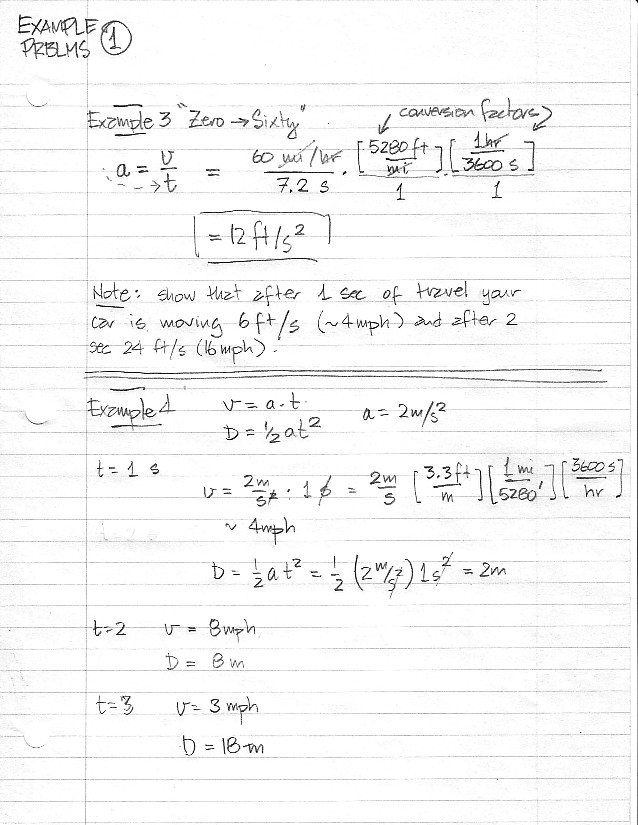 EXAMPLE
PRBLMS 1
Example 3 "Zero → Sixty" conversion factors
a = v/t = 60 mi/hr / 7.2 s · [5280 ft / mi]/1 · [1 hr / 3600 s]/1
= 12 ft/s²
Note: show that after 1 sec of travel your
car is moving 6 ft/s (~4mph) and after 2
sec 24 ft/s (16 mph).
Example 4 v = a·t a = 2m/s²
D = ½at²
t = 1 s
v = 2m/s² · 1 s = 2m/s [3.3 ft / m] [1 mi / 5280'] [3600 s / hr]
~ 4mph
D = 1/2 at² = 1/2 (2 m/s²) 1s² = 2m
t=2 v = 8mph
D = 8m
t=3 v = 3 mph
D = 18m